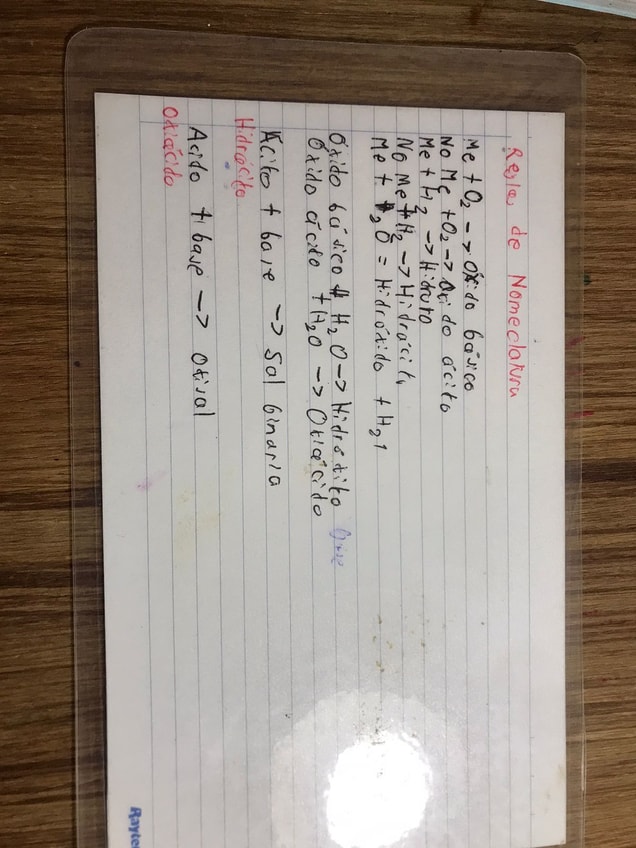 Reglas de Nomeclatura
Me + O2 -> Óxido básico
No Me + O2 -> Óxido ácito
Me + H2 -> Hidruro
No Me + H2 -> Hidrácito
Me + H2O = Hidróxido + H2↑
Óxido básico + H2O -> Hidróxito base
Óxido ácido + H2O -> Oxiácido
Ácito + base -> Sal binaria
Hidrácito
Acido + base -> Oxisal
Oxiácido
Rayter